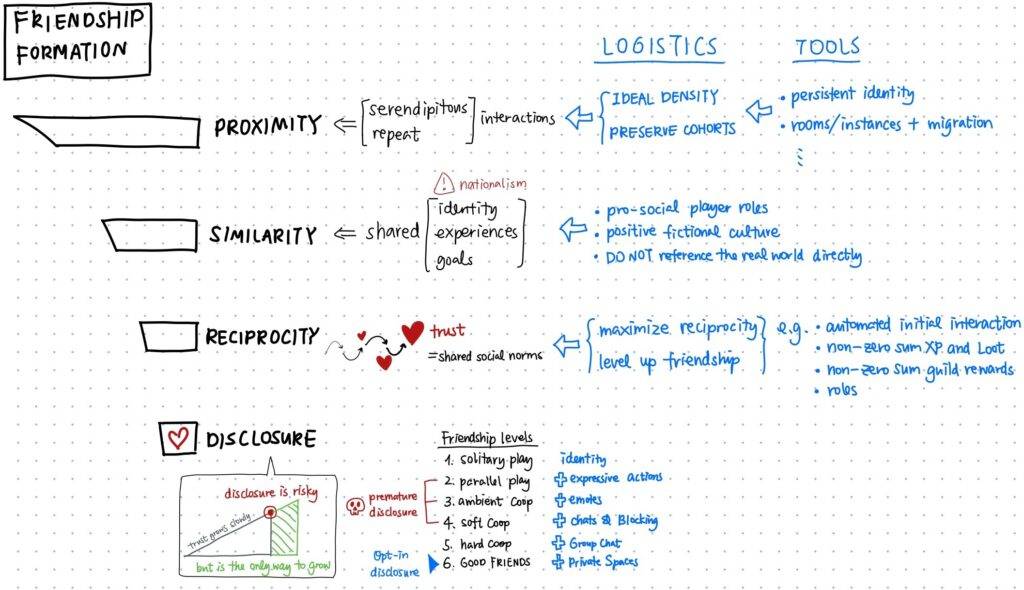 FRIENDSHIP
FORMATION
LOGISTICS
TOOLS
PROXIMITY
serendipitous
repeat
interactions
IDEAL DENSITY
PRESERVE COHORTS
• persistent identity
• rooms/instances + migration
nationalism
SIMILARITY
shared
identity
experiences
goals
• pro-social player roles
• positive fictional culture
• DO NOT reference the real world directly
RECIPROCITY
trust
=shared social norms
maximize reciprocity
level up friendship
e.g.
• automated initial interaction
• non-zero sum XP and Loot
• non-zero sum guild rewards
• roles
DISCLOSURE
disclosure is risky
trust grows slowly
but is the only way to grow
premature
disclosure
Opt-in
disclosure
Friendship levels
1. solitary play
2. parallel play
3. ambient coop
4. soft coop
5. hard coop
6. GOOD FRIENDS
identity
+ expressive actions
+ emotes
+ chats & Blocking
+ Group Chat
+ Private Spaces